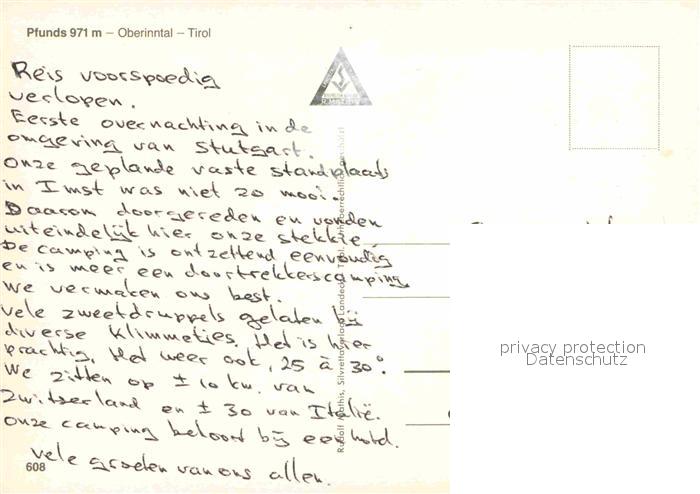 Pfunds 971 m – Oberinntal – Tirol
Reis voorspoedig
verlopen.
Eerste overnachting in de
omgeving van Stutgart.
onze geplande vaste standplaats
in Imst was niet zo mooi.
Daarom doorgereden en vonden
uiteindelijk hier onze stekkie.
De camping is ontzettend eenvoudig
en is meer een doortrekkerscamping.
We vermaken ons best.
vele zweetdruppels gelaten bij
diverse klimmetjes. Het is hier
prachtig, Het weer ook, 25 à 30°.
We zitten op ± 10 km. van
Zwitserland en ± 30 van Italië.
onze camping behoort bij een hotel.
vele groeten van ons allen.
608
Rudolf Mathis, Silvrettaverlag Landeck, Tirol. Urheberrechtlich geschützt
privacy protection
Datenschutz